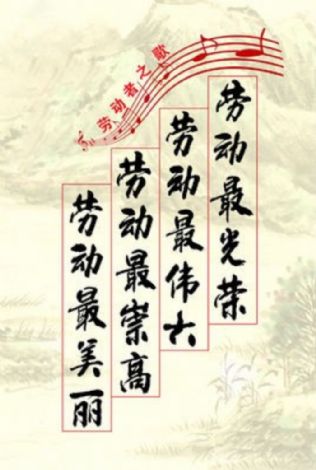 劳动者之歌
劳动最光荣
劳动最伟大
劳动最崇高
劳动最美丽